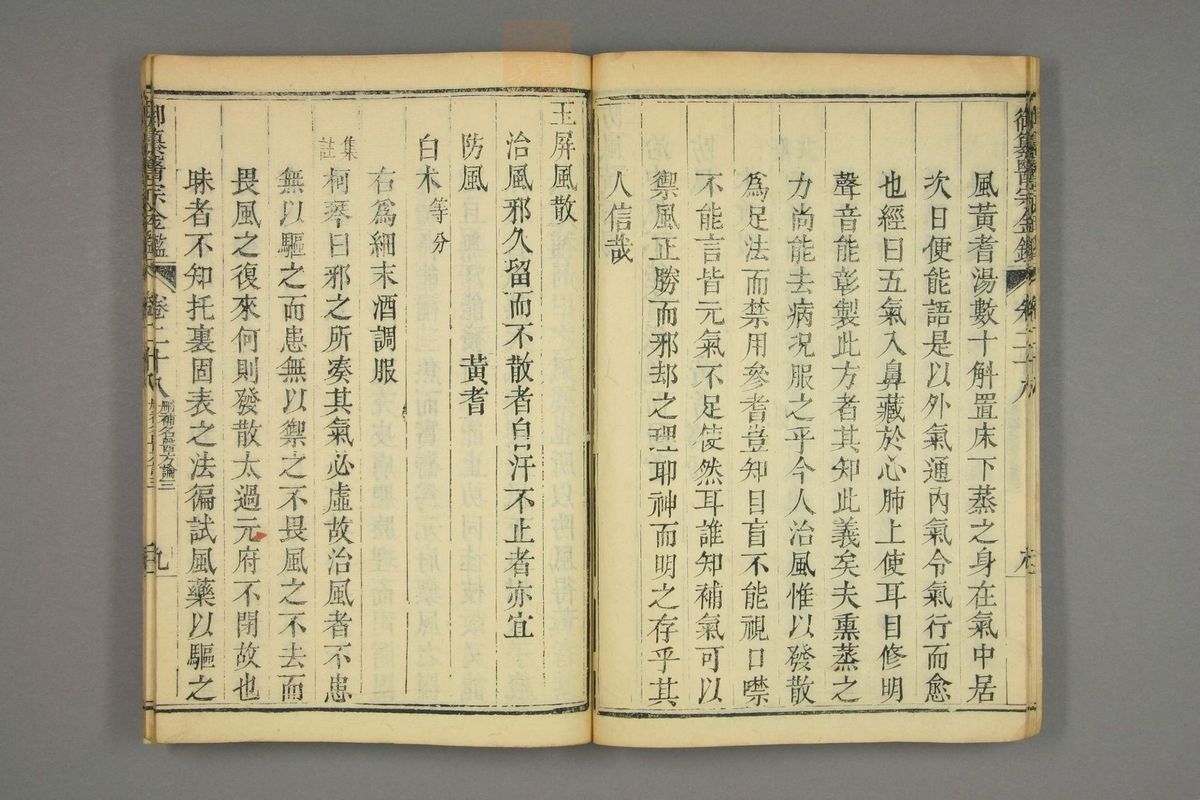 風黃耆湯數十斛置床下蒸之身在氣中居
次日便能語是以外氣通內氣令氣行而愈
也經曰五氣入鼻藏於心肺上使耳目修明
聲音能彰製此方者其知此義矣夫熏蒸之
力尚能去病况服之乎今人治風惟以發散
爲足法而禁用參耆豈知目盲不能視口噤
不能言皆元氣不足使然耳誰知補氣可以
禦風正勝而邪却之理耶神而明之存乎其
人信哉
玉屏風散
治風邪久留而不散者自汗不止者亦宜
防風 黃耆
白朮等分
右爲細末酒調服
集註 柯琴曰邪之所凑其氣必虛故治風者不患
無以驅之而患無以禦之不畏風之不去而
畏風之復來何則發散太過元府不閉故也
昧者不知托裏固表之法徧試風藥以驅之
御纂醫宗金鑑 卷二十八 刪補名醫方論三 九